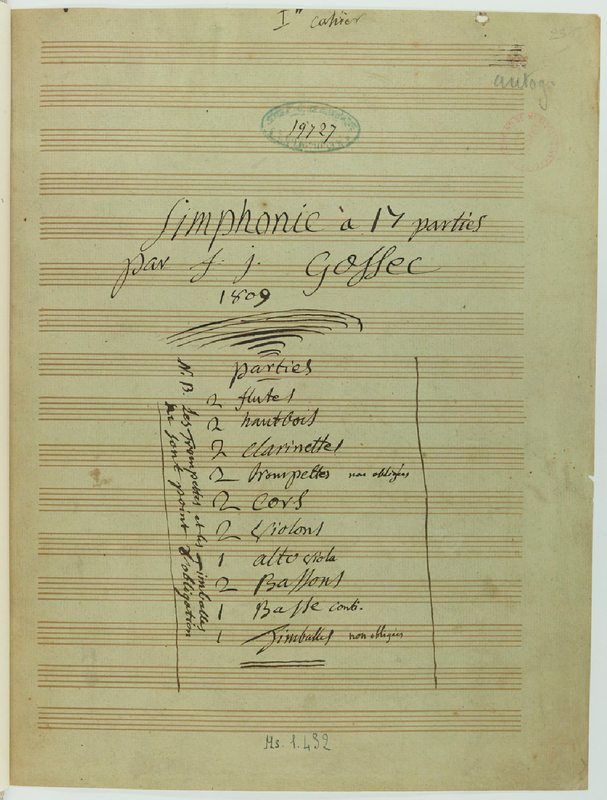 Ier cahier
autogr
19727
Simphonie à 17 parties
par f. j. Gossec
1809
parties
2 flutes
2 hautbois
2 clarinettes
2 trompettes non obligées
2 cors
2 violons
1 alto viola
2 Bassons
1 Basse conti.
1 Timballes non obligées
N. B. Les trompettes et les Timballes
ne sont point d'obligation
Ms. 1.432